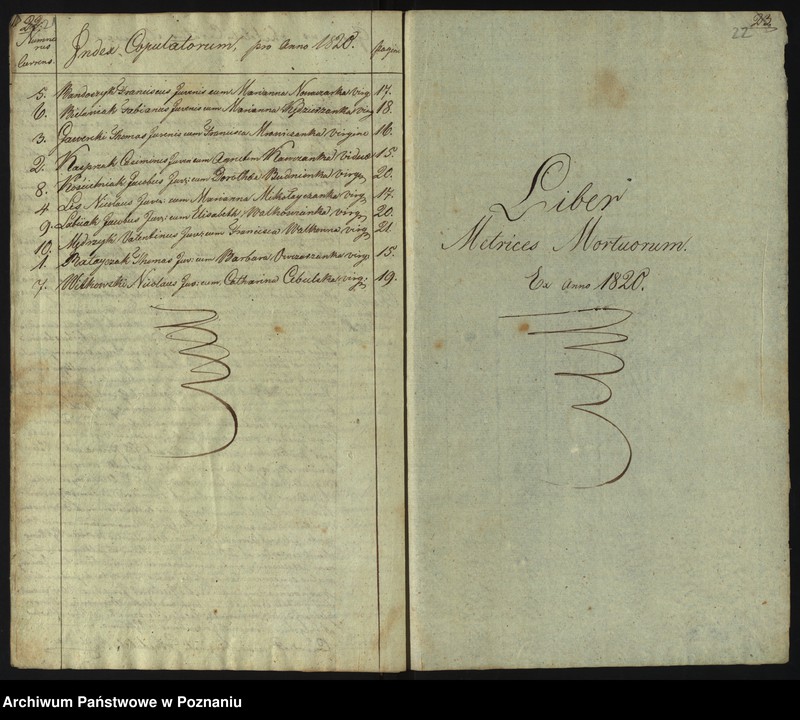 Numerus Currens.
Index Copulatorum, pro Anno 1820.
pagina
5. Bandoszyk Franciscus Juvenis cum Marianna Nowaczka virg. 17.
6. Bielawiak Fabianus Juvenis cum Marianna virg 18.
3. Gawecki Thomas Juvenis cum Francisca virgine 16.
2. Kasprzak Juveni cum Kamzanka vidua 15.
8. Jacobus Juv: cum Dorothea Budnionka virg. 20.
4. Lis Nicolaus Juv: cum Marianna Mikołayczanka virg 17.
9. Jacobus Juv: cum Elisabeth Walkowianka virg 20.
10. Mędrzyk Valentinus Juv: cum Francisca Walkowna virg 21.
1. Ratayczak Thomas Juv: cum Barbara Owczaszanka virg 15.
7. Witkowski Nicolaus Juv: cum Catharina Cebulska virg: 19.
22
Liber
Metrices Mortuorum.
Ex Anno 1820.
Archiwum Państwowe w Poznaniu